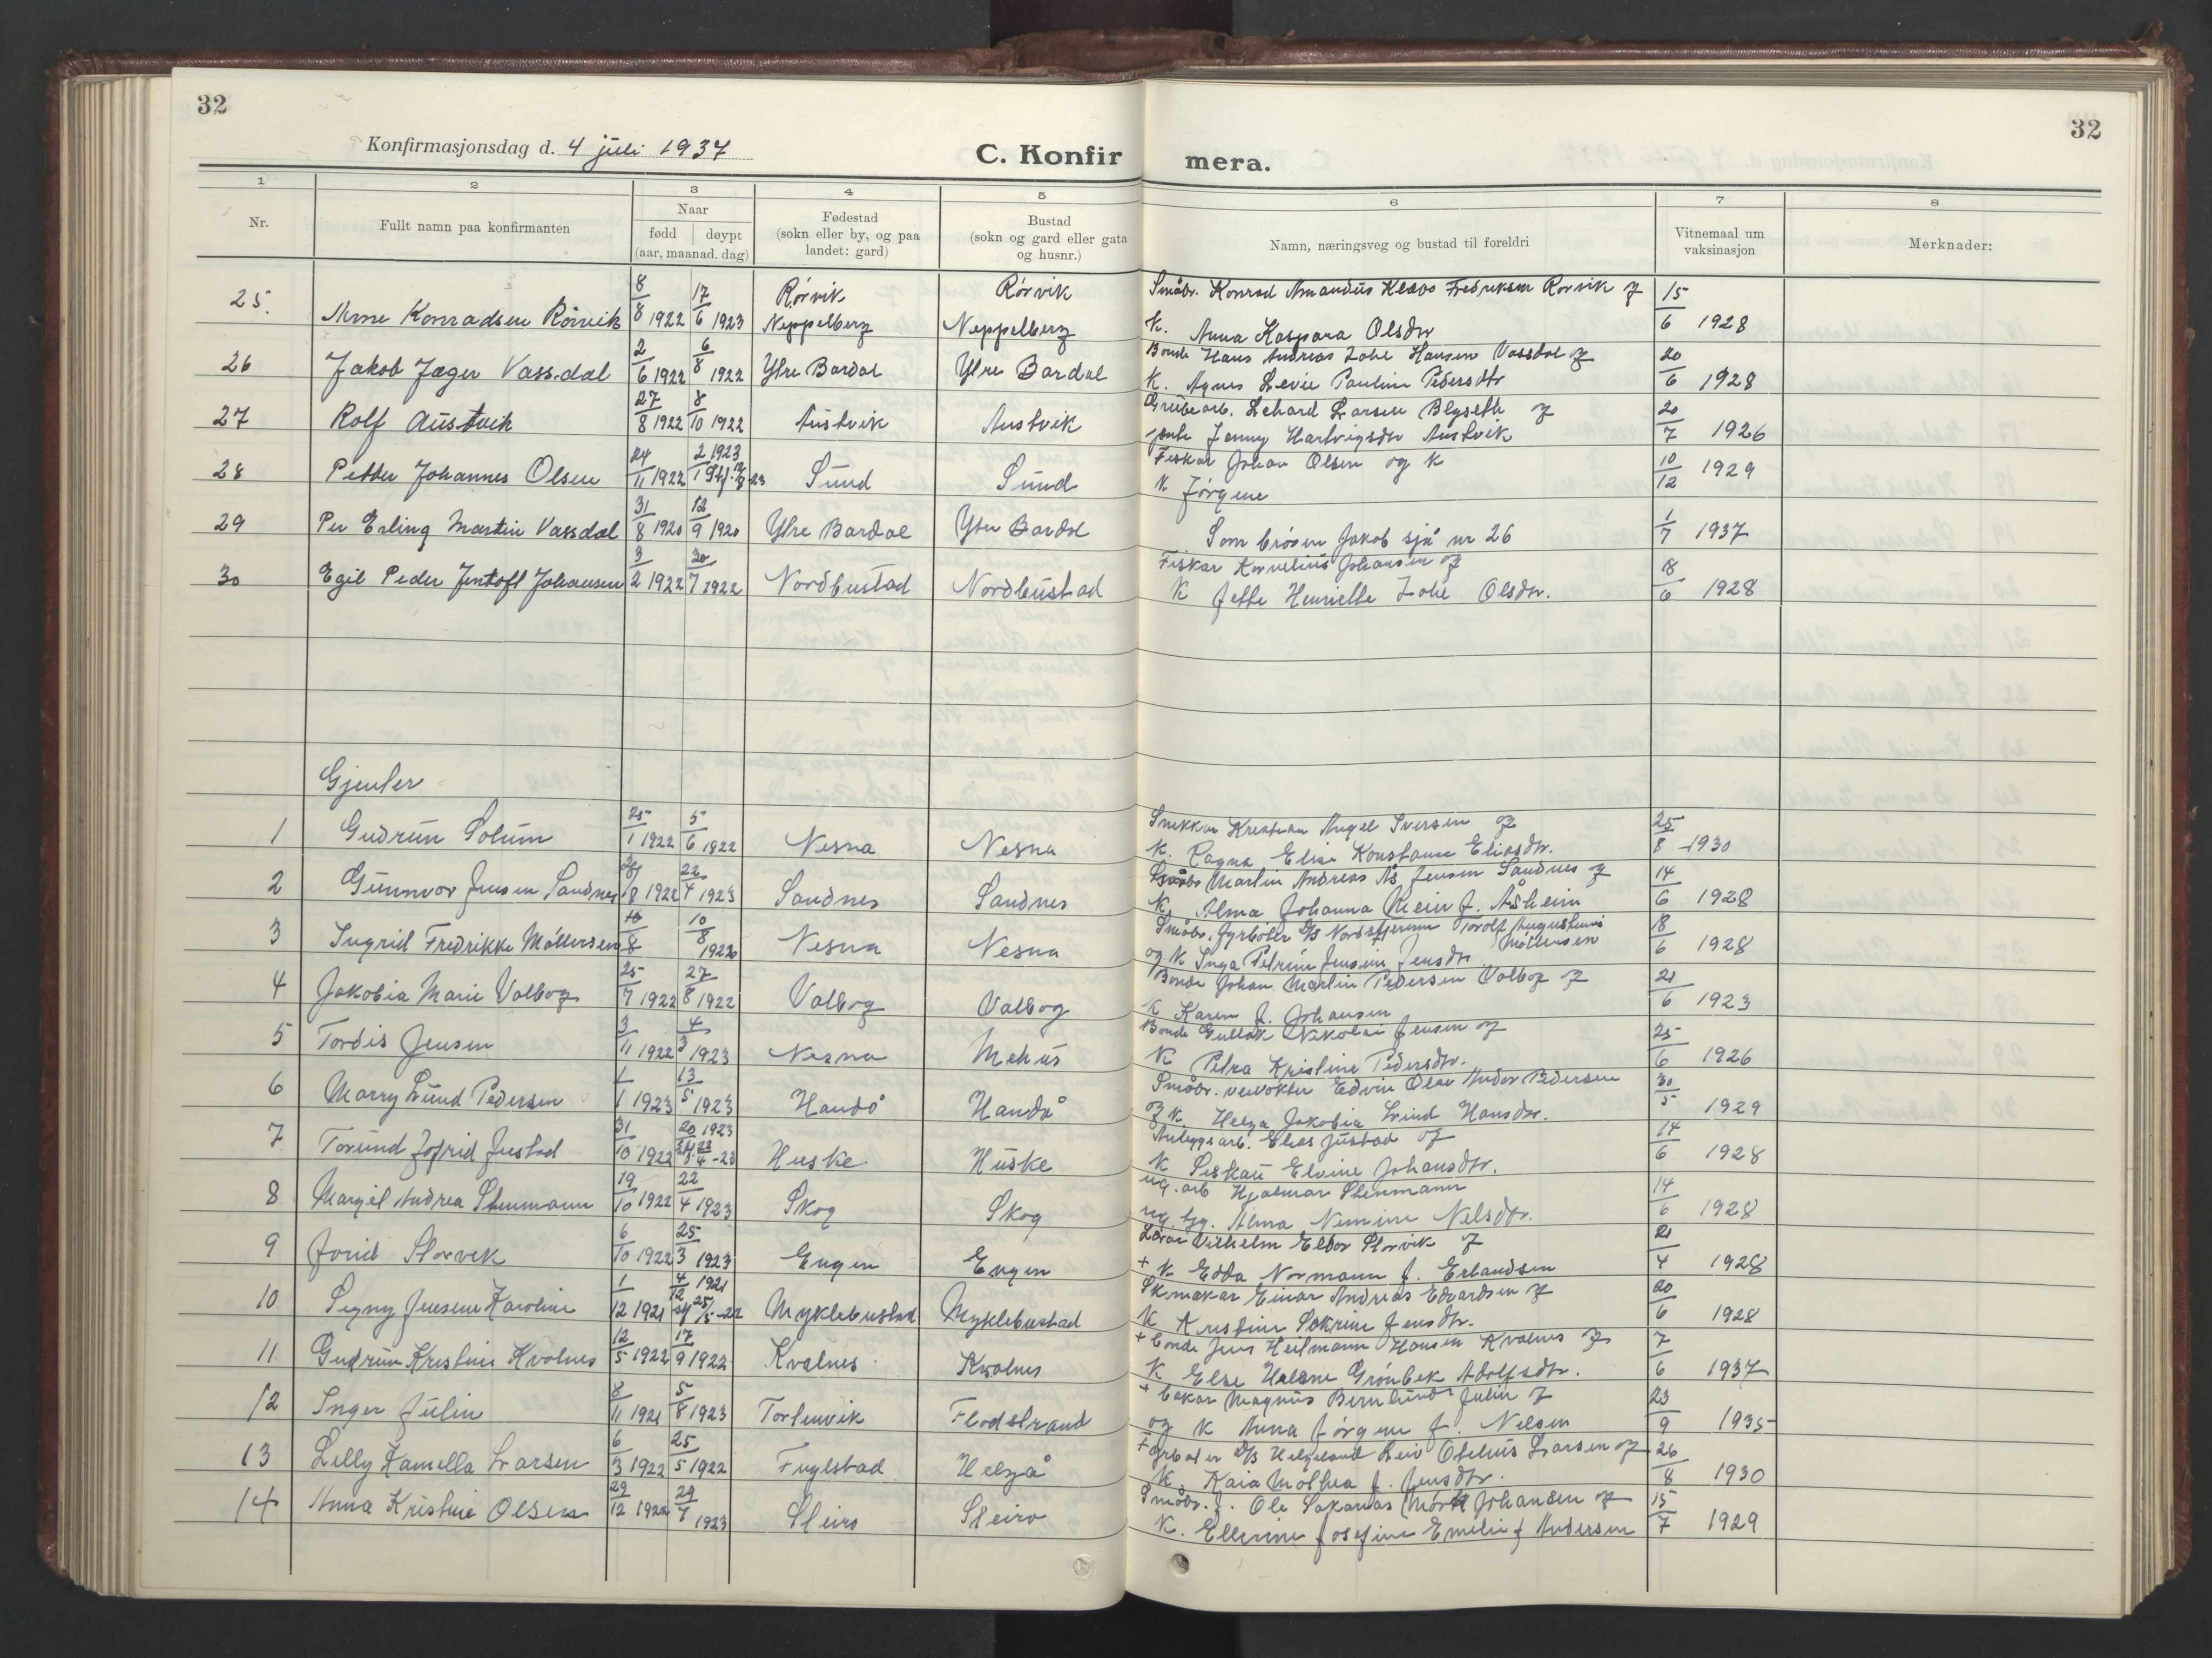 32
32
Konfirmasjonsdag d. 4 juli 1937
C. Konfir mera.
1 2 3 4 5 6 7 8
Nr.
Fullt namn paa konfirmanten
Naar
fødd døypt
(aar, maanad. dag)
Fødestad
(sokn eller by, og paa
landet: gard)
Bustad
(sokn og gard eller gata
og husnr.)
Namn, næringsveg og bustad til foreldri
Vitnemaal um
vaksinasjon
Merknader:
25. Arne Konradsen Rörvik 8/8 1922 17/6 1923 Rörvik Neppelberg Rörvik Neppelberg Småbr. Konrad Amandus Fredriksen Rörvik og
k. Anna Kaspara Olsdtr 15/6 1928
26 Jakob Jæger Vassdal 2/6 1922 6/8 1922 Ytre Bardal Ytre Bardal Bonde Hans Andreas Hansen Vassdal og
k. Agnes Levie Pauline Pedersdtr 20/6 1928
27 Rolf Austvik 27/8 1922 8/10 1922 Austvik Austvik Grubearb. Lehard Larsen Blyseth og
Jenny Hartvigsdtr Austvik 20/7 1926
28 Petter Johannes Olsen 24/11 1922 2/1 1923 Sund Sund Fiskar Johan Olsen og k
k Jörgine 10/12 1929
29 Per Erling Martin Vassdal 31/8 1920 12/9 1920 Ytre Bardal Ytre Bardal Som broren Jakob sjå nr 26 1/7 1937
30 Egil Peder Jentoft Johansen 3/2 1922 30/7 1922 Nordbustad Nordbustad Fiskar Kornelius Johansen og
K Jette Henriette Olsdtr. 18/6 1928
Gjenter
1 Gudrun Solum 25/1 1922 5/6 1922 Nesna Nesna Snikkar Kristian Angel Iversen og
k. Ragna Elise Konstanse Eliasdtr. 25/8 1930
2 Gunnvor Jensen Sandnes 1922 22/4 1923 Sandnes Sandnes Småbr Martin Andreas Jensen Sandnes og
k. Alma Johanna Meier f. Åsheim 14/6 1928
3 Ingrid Fredrikke Möllersen 10/8 Nesna Nesna Småbr. fyrböter D/S Nordstjernen Torolf Augustinus
Möllersen
og k Inga Petrine Jensine Jensdtr 18/6 1928
4 Jakobia Marie Valbog 25/7 1922 27/8 1922 Valbog Valbog Bonde Johan Martin Pedersen Valbog og
k Karen J. Johansen 21/6 1923
5 Tordis Jensen 3/11 1922 4/3 1923 Nesna Mehus Bonde Gullak Nikolai Jensen og
k Petra Kristine Pedersdtr. 25/6 1926
6 Marry Lund Pedersen 1/1 1923 13/5 1923 Handå Handå Småbr. veivokter Edvin Olav Andor Pedersen
og k Helga Jakobia Lund Hansdtr. 30/5 1929
7 Torund Jofrid Justad 31/10 1922 20 1923 Huske Huske Anleggsarb. Elias Justad og
k Elvine Johansdtr. 14/6 1928
8 Margel Andrea Stenmann 19/10 1922 22/4 1923 Skog Skog ug. arb Hjalmar Stenmann
ug. Alma Nemine Nelsdtr. 14/6 1928
9 Jorid Storvik 6/10 1922 25/3 1923 Engen Engen Lærar Vilhelm Eldor Storvik og
+ k Edda Normann f. Erlandsen 21/4 1928
10 Signy Jensine Karoline 1/12 1921 4/12 1921 Myklebustad Myklebustad Skmakar Einar Andreas Edvardsen og
k Kristine Jensdtr. 20/6 1928
11 Gudrun Kristine Kvalnes 12/5 1922 17/9 1922 Kvalnes Kvalnes + bonde Jens Heilmann Hansen Kvalnes og
k Else Helene Grönbek Adolfsdtr. 7/6 1937
12 Inger Julin 8/11 1921 5/8 1923 Flodstrand + bakar Magnus Bernlund Julin og
og k Anna Jörgine f. Nelsen 23/9 1935
13 Lelly Kamella Larsen 6/3 1922 25/5 1922 Fuglstad Helgå Fyrböter D/S Helgeland Leiv Otelius Larsen og
k. Kaia Mathea f. Jensdtr. 26/8 1930
14 Anna Kristine Olsen 29/12 1922 29/7 1923 Steiro Steiro Småbr. f. Ole Sakarias Mörk Johansen og
k. Ellerine Josefine Emelie f Andersen 15/7 1929